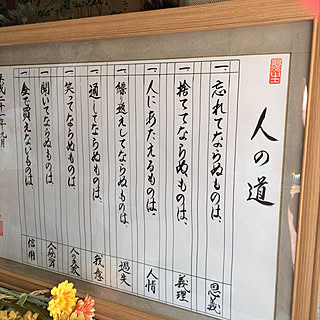 人の道
一、忘れてならぬものは、 恩義
一、捨ててならぬものは、 義理
一、人にあたえるものは、 人情
一、繰返えしてならぬものは、 過失
一、通してならぬものは、 我意
一、笑ってならぬものは、 人の失敗
一、聞いてならぬものは、 人の秘密
一、金で買えないものは、 信用
平成二十一年九月